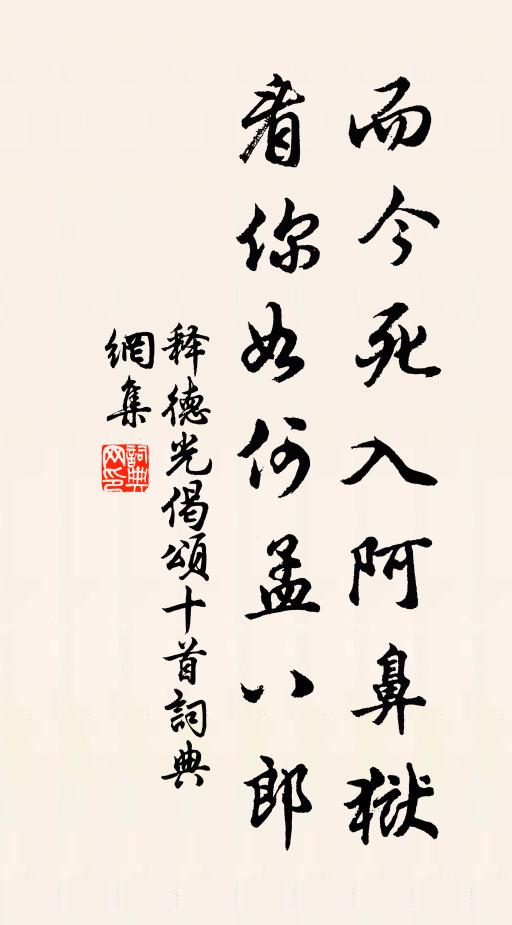 而今死入阿鼻獄
看你如何孟八郎
释德光偈頌十首詞典
網集
詞典
网印